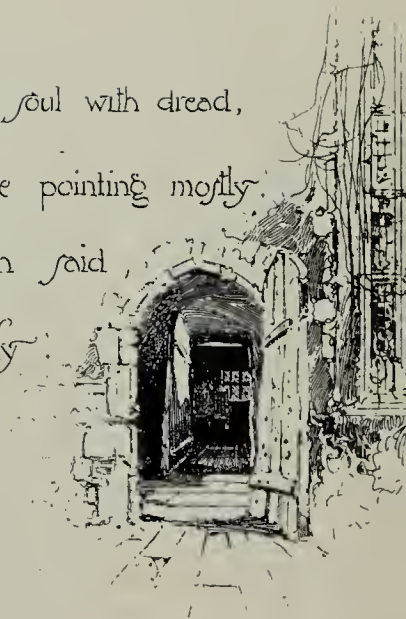 ſoul with dread,
e pointing moſtly
n ſaid